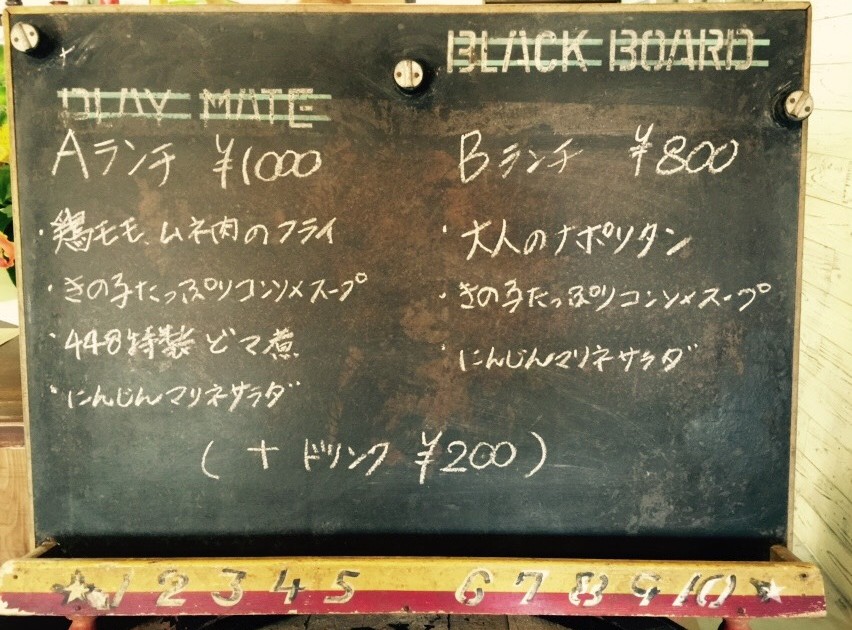 BLACK BOARD
PLAY MATE
Aランチ ¥1000
・鶏モモ、ムネ肉のフライ
・きの子たっぷりコンソメスープ
・448特製どて煮
・にんじんマリネサラダ
Bランチ ¥800
・大人のナポリタン
・きの子たっぷりコンソメスープ
・にんじんマリネサラダ
(+ ドリンク ¥200)
1 2 3 4 5 6 7 8 9 10